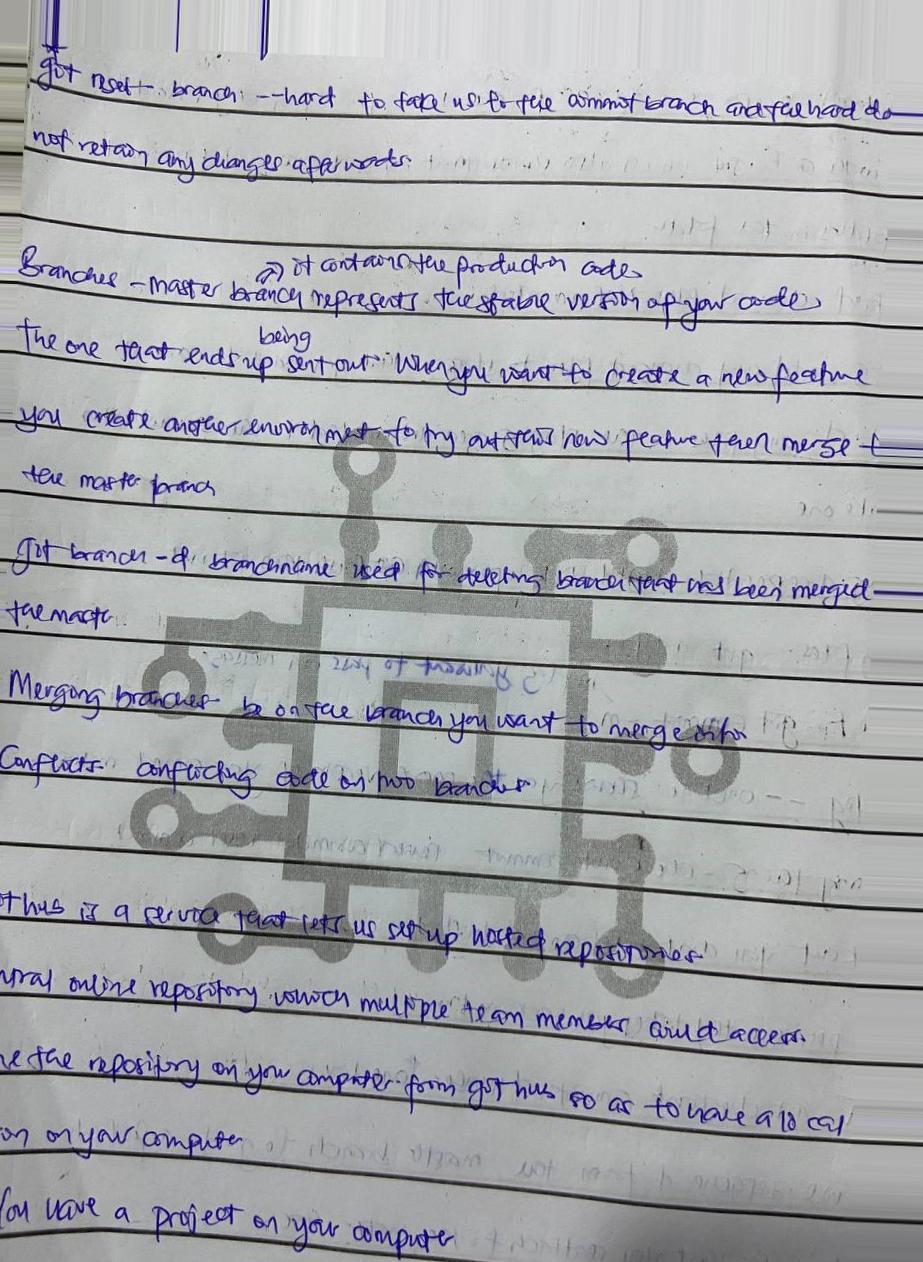 git reset branch --hard to take us to the commit branch and the hard do
not retain any changes afterwards.
it contains the production code
Branches - master branch represents the stable version of your code
being
The one that ends up sent out. When you want to create a new feature
you create another environment to try out this new feature then merge t
the master branch
git branch -d branchname used for deleting branch that has been merged
the maste
Merging branches be on the branch you want to merge onto
Conflicts conflicting code on two branches
thub is a service that lets us set up hosted repositories
ntral online repository which multiple team members could access.
ne the repository on your computer from github so as to have a local
on on your computer
You have a project on your computer